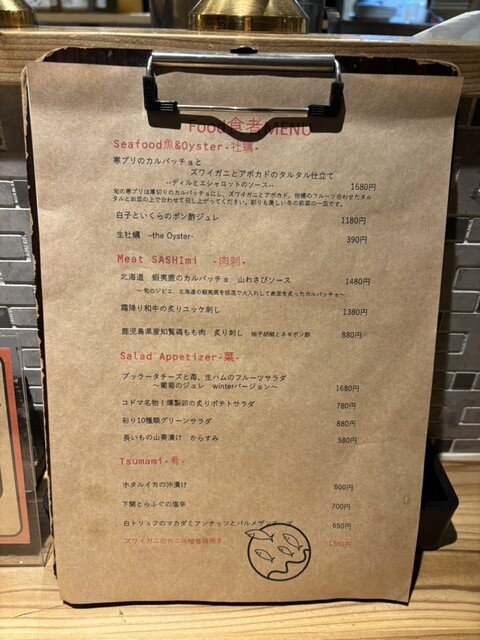 Food食者MENU
Seafood魚&Oyster-牡蠣-
寒ブリのカルパッチョと
ズワイガニとアボカドのタルタル仕立て
--ディルとエシャロットのソース-- 1680円
旬の寒ブリは厚切りのカルパッチョにし、ズワイガニとアボカド、柑橘のフルーツ合わせたタル
タルとお皿の上で合わせて召し上がってください。彩りも美しい冬の前菜の一皿です。
白子といくらのポン酢ジュレ 1180円
生牡蠣 -the Oyster- 390円
Meat SASHImi -肉刺-
北海道 蝦夷鹿のカルパッチョ 山わさびソース 1480円
～旬のジビエ、北海道の蝦夷鹿を低温で火入れして表面を炙ったカルパッチョ～
霜降り和牛の炙りユッケ刺し 1380円
鹿児島県産知覧鶏もも肉 炙り刺し 柚子胡椒とネギポン酢 880円
Salad Appetizer-菜-
ブッラータチーズと苺、生ハムのフルーツサラダ
～葡萄のジュレ winterバージョン～ 1680円
コドマ名物！燻製卵の炙りポテトサラダ 780円
彩り10種類グリーンサラダ 880円
長いもの山葵漬け からすみ 580円
Tsumami-肴-
ホタルイカの沖漬け 600円
下関とらふぐの塩辛 700円
白トリュフのマカダミアンナッツとパルメザンチーズ 650円
ズワイガニのカニ味噌甲羅焼き 1380円